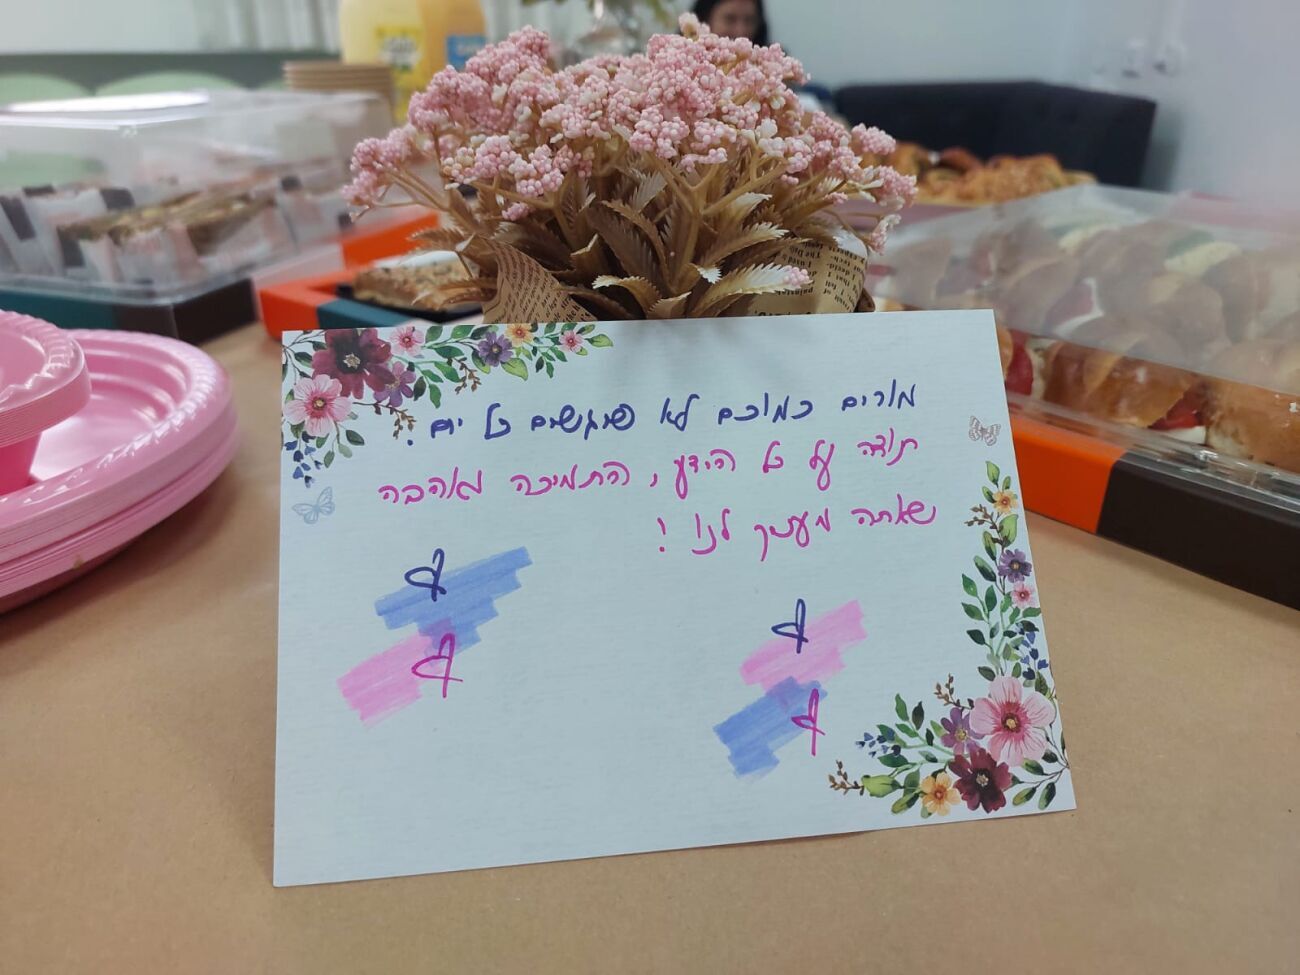 מורים כמוכם לא פוגשים כל יום.
תודה על כל הידע, התמיכה ואהבה
שאתה מעניק לנו!